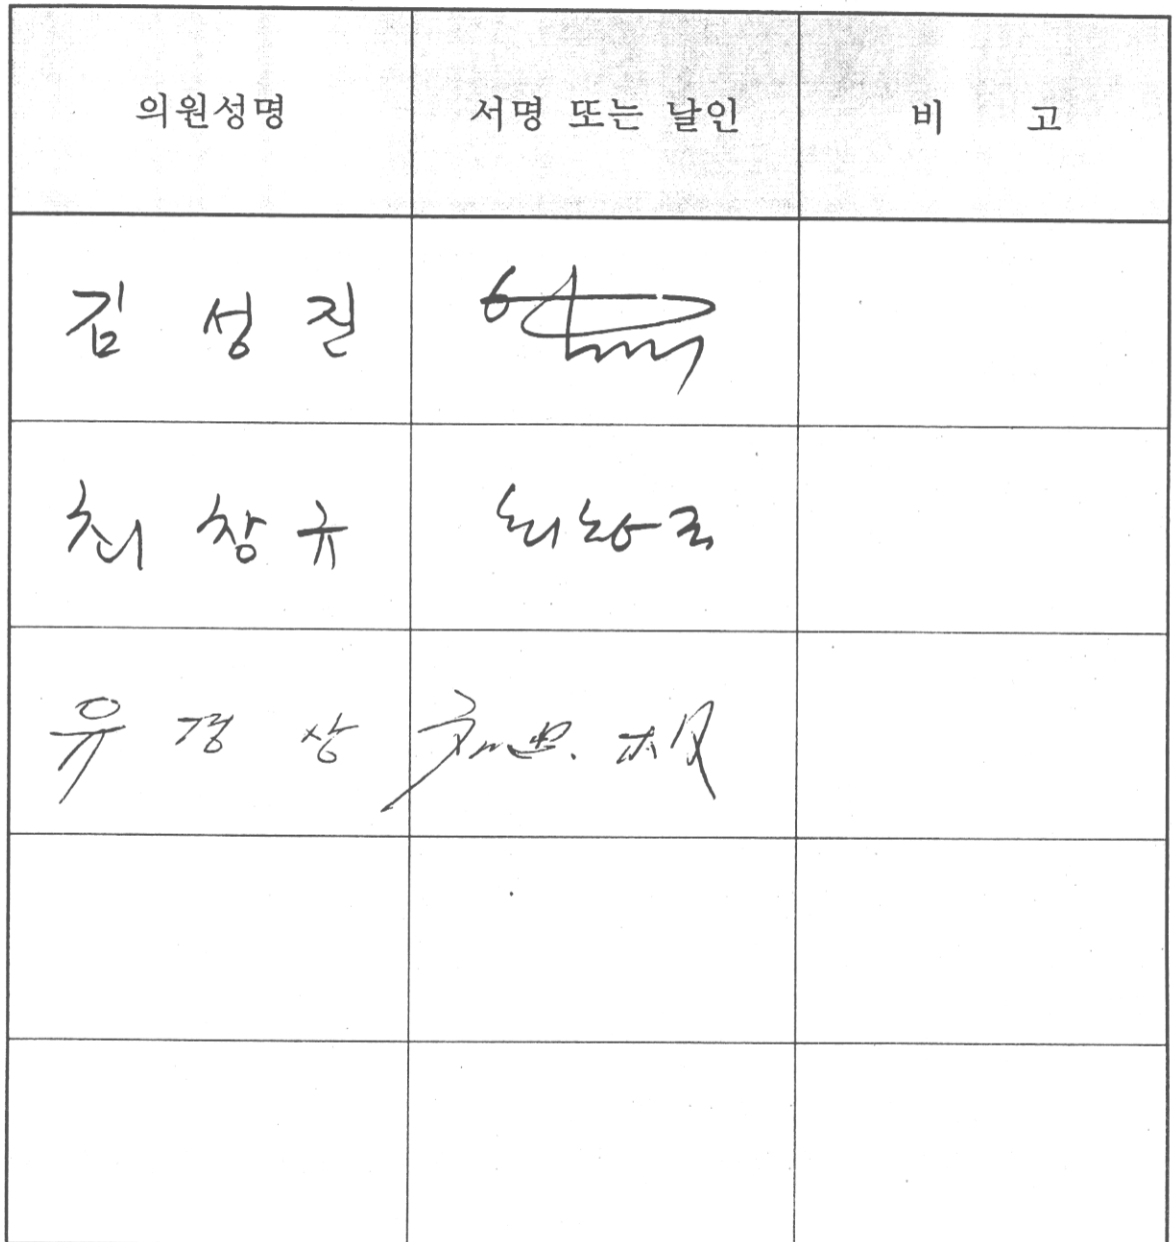 의원성명 서명 또는 날인 비 고
김 성 진
최 창 규 최창규
유 경 상